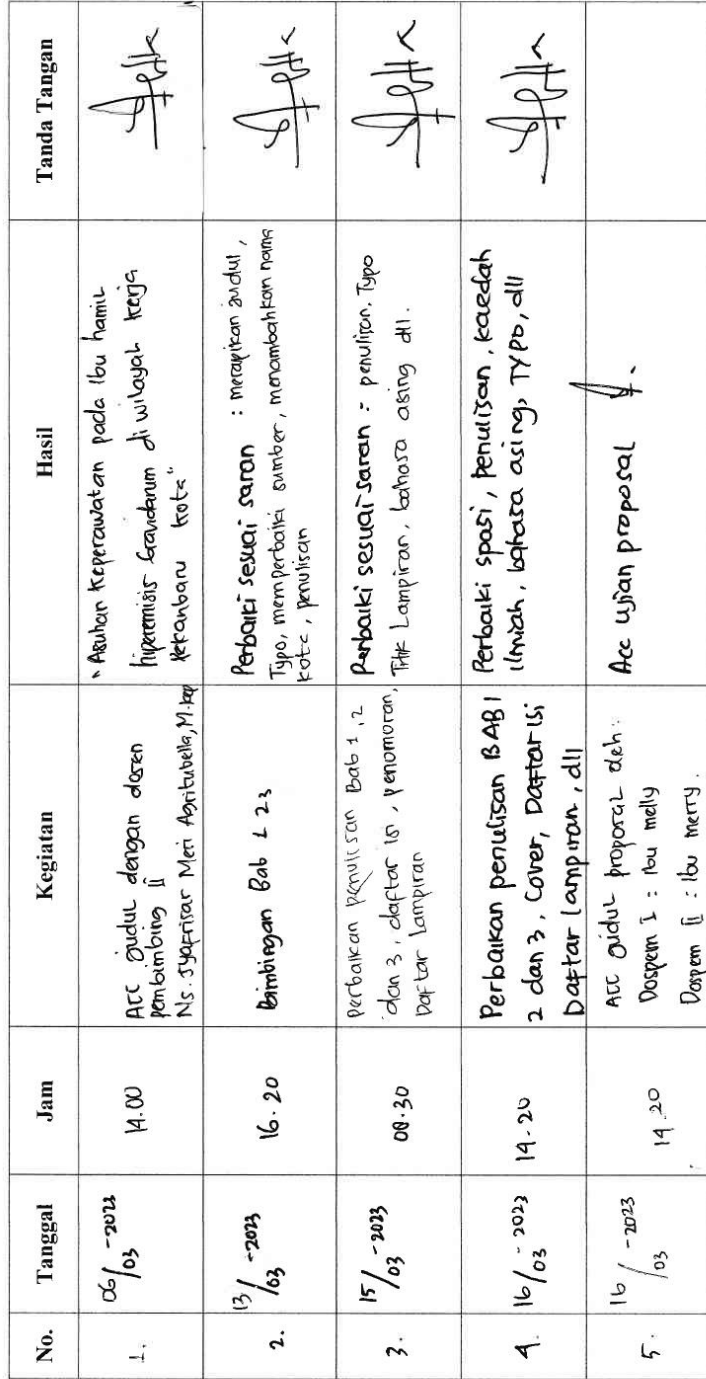 No. Tanggal Jam Kegiatan Hasil Tanda Tangan
1.
06/03-2023
14.00
Acc judul dengan dosen
pembimbing ii
Ns. Syafrisar Meri Agritubella, M.kep
"Asuhan keperawatan pada ibu hamil
hiperemisis Gravidarum di wilayah kerja
Pekanbaru kota"
2.
13/03-2023
16.20
Bimbingan Bab 1 23
Perbaiki sesuai saran : merapikan judul,
Typo, memperbaiki sumber, menambahkan nama
kota, penulisan
3.
15/03-2023
08.30
Perbaikan penulisan Bab 1, 2
dan 3, daftar isi, penomoran,
Daftar lampiran
Perbaiki sesuai saran : penulisan. Typo
Titik Lampiran, bahasa asing dll.
4.
16/03-2023
14.20
Perbaikan penulisan BAB 1
2 dan 3, Cover, Daftar isi
Daftar lampiran, dll
Perbaiki spasi, penulisan, kaedah
ilmiah, bahasa asing, TYPO, dll
5.
16/03-2023
14.20
Acc judul proposal oleh:
Dospem I : Ibu melly
Dospem ii : Ibu merry.
Acc ujian proposal